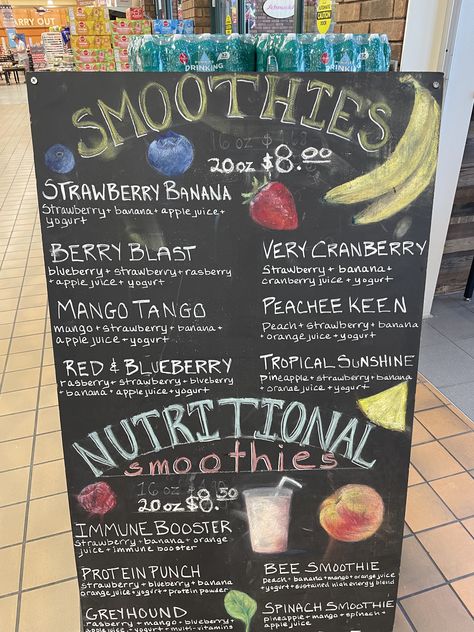 CARRY OUT
DRINKING
DRINKING
SMOOTHIES
16 oz
20 oz $8.00
STRAWBERRY BANANA
Strawberry + banana + apple juice +
yogurt
BERRY BLAST
blueberry + strawberry + rasberry
+ apple juice + yogurt
VERY CRANBERRY
Strawberry + banana +
cranberry juice + yogurt
MANGO TANGO
mango + strawberry + banana +
apple juice + yogurt
PEACHEE KEEN
Peach + strawberry + banana
+ orange juice + yogurt
RED & BLUEBERRY
rasberry + strawberry + blueberry
+ banana + apple juice + yogurt
TROPICAL SUNSHINE
pineapple + strawberry + banana
+ orange juice + yogurt
NUTRITIONAL
smoothies
16 oz
20 oz $8.50
IMMUNE BOOSTER
Strawberry + banana + orange
juice + immune booster
PROTEIN PUNCH
strawberry + blueberry + banana
orange juice + yogurt + protein powder
GREYHOUND
rasberry + mango + blueberry
apple juice + yogurt + multi-vitamins
BEE SMOOTHIE
Peach + banana + mango + orange juice
+ yogurt + sustained high energy blend
SPINACH SMOOTHIE
pineapple + mango + spinach
+ apple juice + yogurt